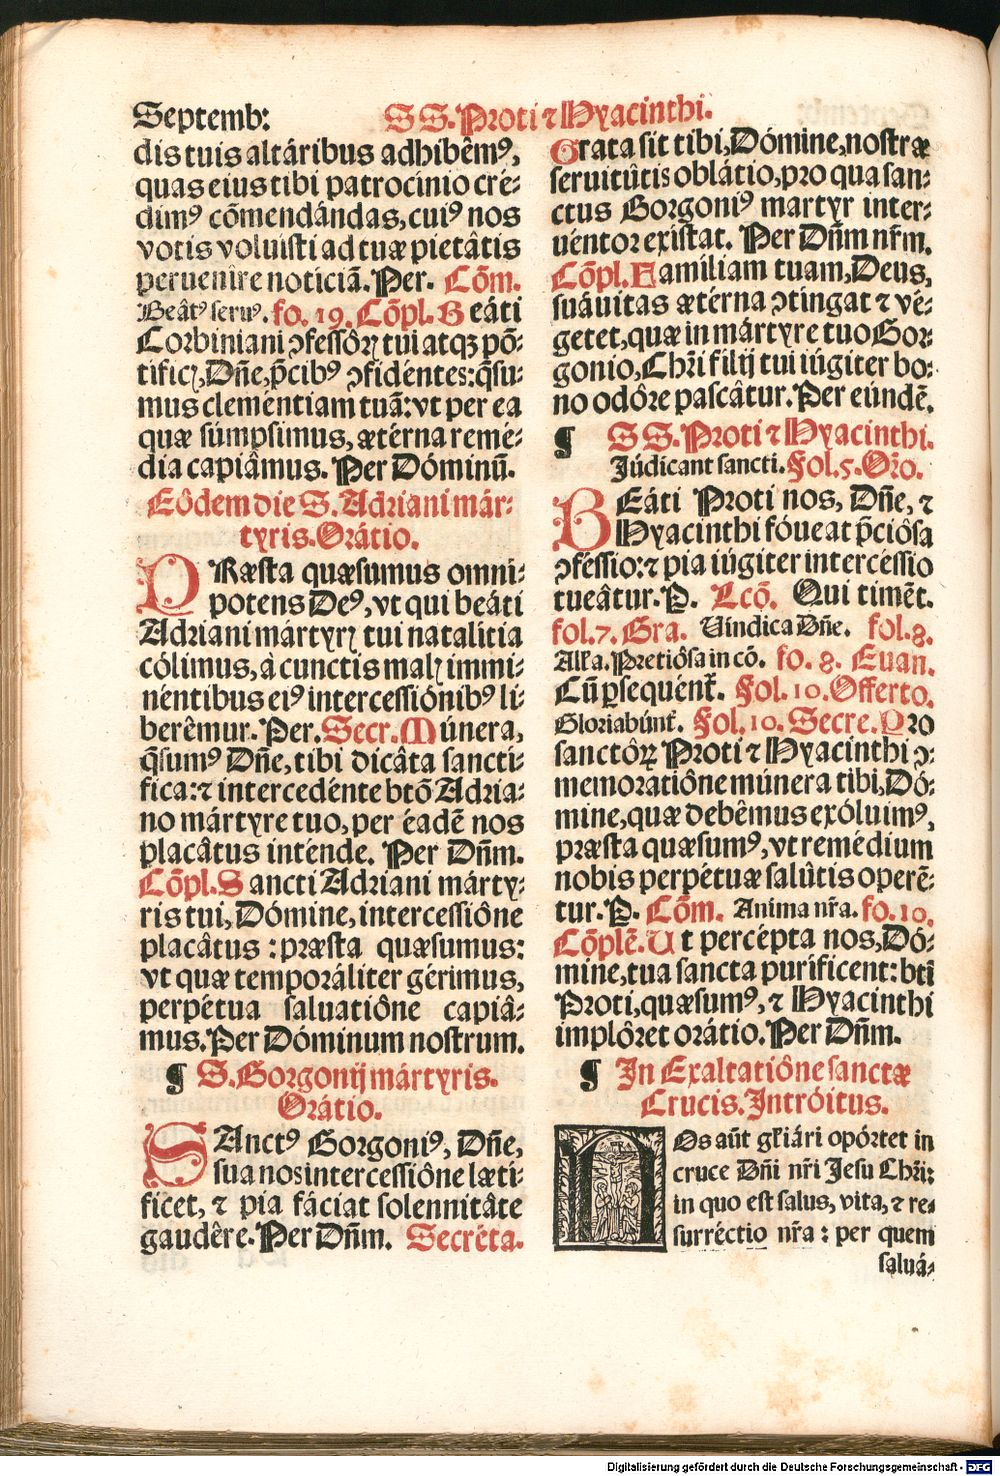 Septemb:
SS. Proti ⁊ Hyacinthi.
dis tuis altáribus adhibêmꝰ,
quas eius tibi patrocinio cre-
dimꝰ cõmendândas, cuiꝰ nos
votis voluisti ad tuæ pietâtis
peruenîre noticiã. Per. Cõm.
Beâtꝰ seruꝰ. fo. 19. Cõpl. Beáti
Corbiniani ꝯfessôrꝭ tui atqꝫ põ-
tificꝭ, Dñe, p̃cibꝰ ꝯfidéntes: q̃su-
mus clementiam tuã: vt per ea
quæ súmpsimus, ætérna remé-
dia capiâmus. Per Dóminũ.
Eôdem die S. Adriani már-
tyris. Orátio.
PRæsta quæsumus omni-
potens Deꝰ, vt qui beáti
Adriani mártyrꝭ tui natalítia
cólimus, à cunctis malꝭ immi-
néntibus eiꝰ intercessiônibꝰ li-
berêmur. Per. Secr. Múnera,
q̃sumꝰ Dñe, tibi dicâta sancti-
fica: ⁊ intercedénte btõ Adria-
no mártyre tuo, per éadẽ nos
placâtus inténde. Per Dñm.
Cõpl. Sancti Adriani márty-
ris tui, Dómine, intercessiône
placâtus: præsta quæsumus:
vt quæ temporáliter gérimus,
perpétua saluatiône capiâ-
mus. Per Dóminum nostrum.
¶ S. Gorgonij mártyris.
Orátio.
SAnctꝰ Gorgoniꝰ, Dñe,
sua nos intercessiône læti-
ficet, ⁊ pia fáciat solennitâte
gaudêre. Per Dñm. Secréta.
Grata sit tibi, Dómine, nostræ
seruitûtis oblátio, pro qua san-
ctus Gorgoniꝰ martyr inter-
uéntor exístat. Per Dñm nr̃m.
Cõpl. Familiam tuam, Deus,
suáuitas ætérna ꝯtingat ⁊ vé-
getet, quæ in mártyre tuo Gor-
gonio, Chr̃i filij tui iúgiter bo-
no odôre pascâtur. Per eúndẽ.
¶ SS. Proti ⁊ Hyacinthi.
Júdicant sancti. Fol. 5. Or̃o.
BEáti Proti nos, Dñe, ⁊
Hyacinthi fóueat p̃ciôsa
ꝯféssio: ⁊ pia iúgiter intercéssio
tueâtur. P. Lcõ. Qui timẽt.
fol. 7. Gra. Uindica Dñe. fol. 8.
Alľa. Pretiôsa in cõ. fo. 8. Euan.
Cũ ꝑsequént̃. Fol. 10. Offerto.
Gloriabúnt̃. Fol. 10. Secre. Pro
sanctôrꝝ Proti ⁊ Hyacinthi ꝯ-
memoratiône múnera tibi, Dó-
mine, quæ debêmus exóluimꝰ,
præsta quæsumꝰ, vt remédium
nobis perpétuæ salûtis operẽ-
tur. P. Cõm. Anima nr̃a. fo. 10.
Cõplẽ. Ut percépta nos, Dó-
mine, tua sancta puríficent: bti
Proti, quæsumꝰ, ⁊ Hyacinthi
implôret orátio. Per Dñm.
¶ In Exaltatiône sanctæ
Crucis. Intróitus.
NOs aũt gľiári opórtet in
cruce Dñi nr̃i Jesu Chr̃i:
in quo est salus, vita, ⁊ re-
surréctio nr̃a: per quem
saluá-
Digitalisierung gefördert durch die Deutsche Forschungsgemeinschaft - DFG